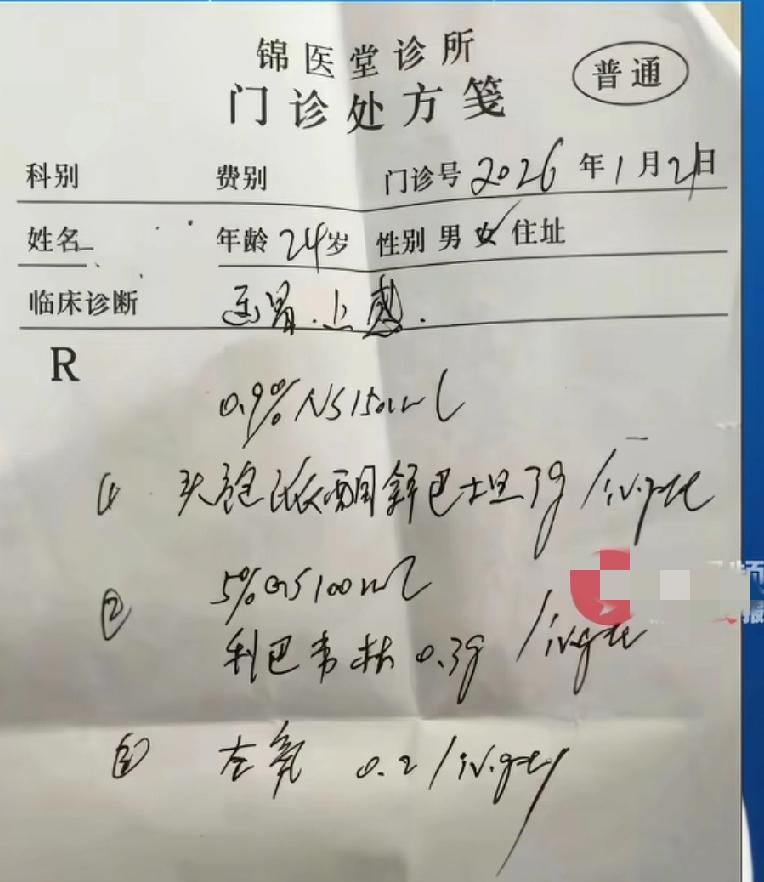 锦医堂诊所
普通
门诊处方笺
科别 费别 门诊号 2026年1月21日
姓名 年龄 24岁 性别 男 女✓ 住址
临床诊断 胃.上感.
R
0.9% NS 150ml
① 头孢哌酮舒巴坦 3g / iv.gtt
5% GS 100ml
② 利巴韦林 0.3g / iv.gtt
③ 左氧 0.2 / iv.gtt
频
报